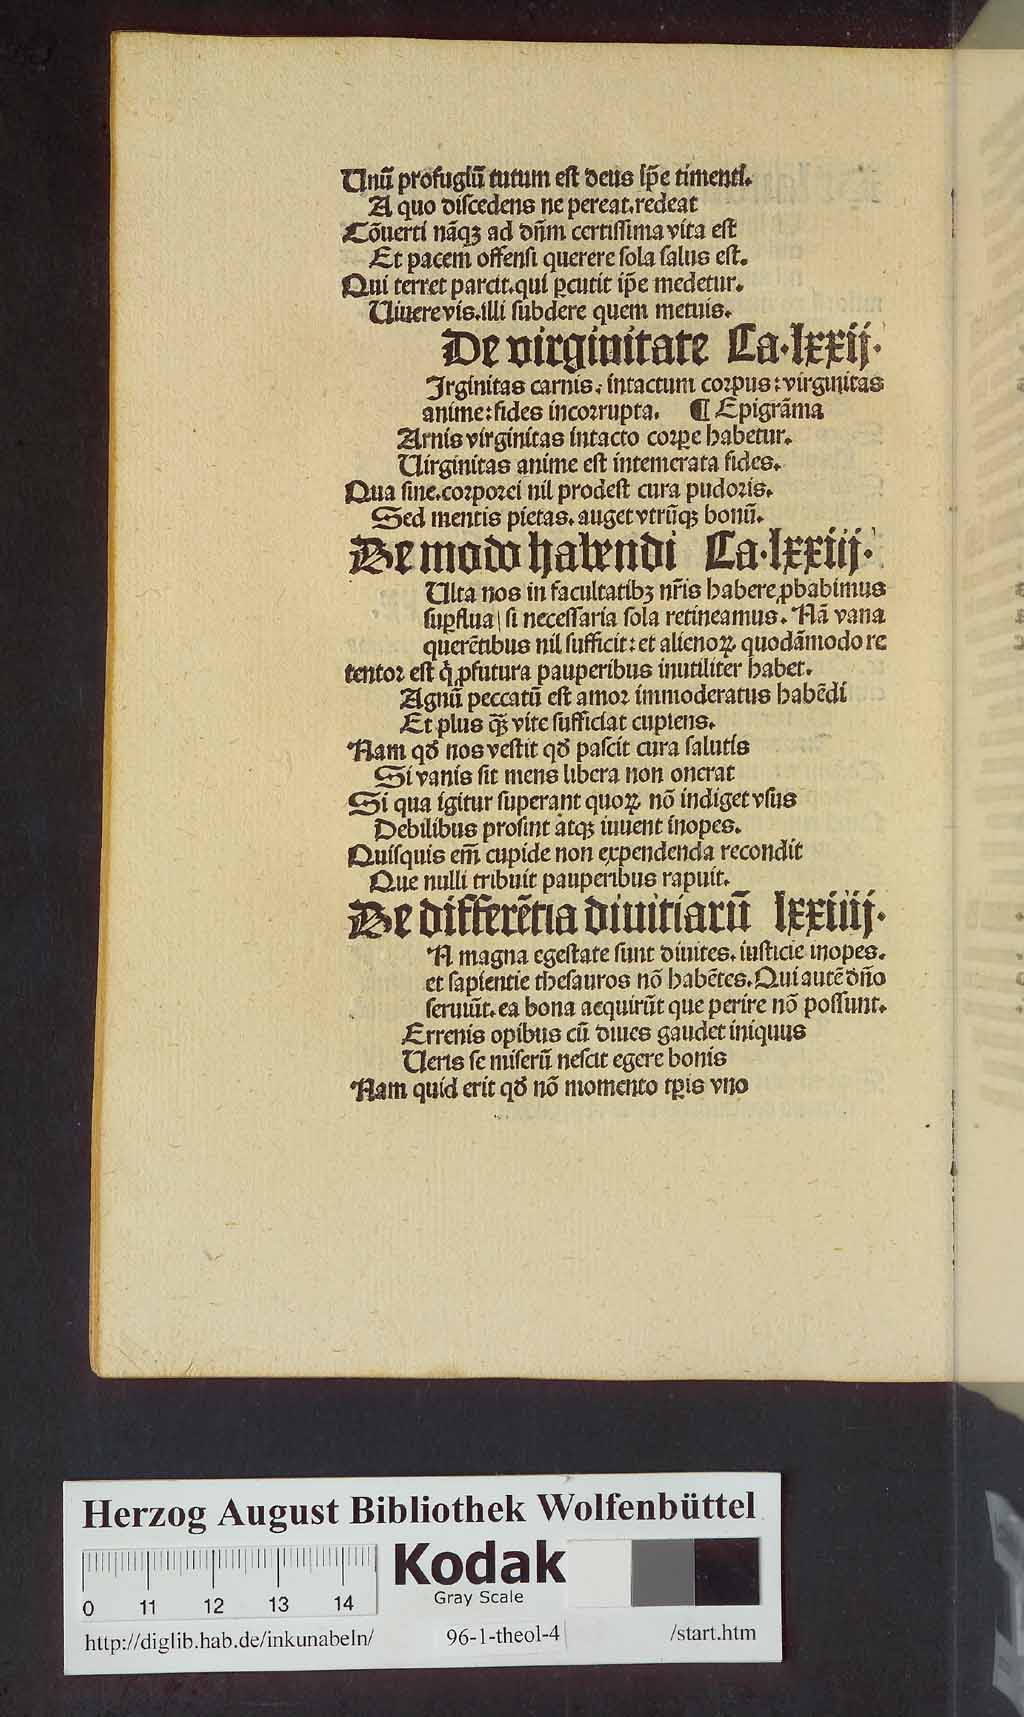 Unū profugiū tutum est deus ip̄e timenti.
A quo discedens ne pereat. redeat
Cōuerti nāqꝫ ad dn̄m certissima vita est
Et pacem offensi querere sola salus est.
Qui terret parcit. qui ꝑcutit ip̄e medetur.
Uiuere vis. illi subdere quem metuis.
De virginitate Ca. lxxij.
Irginitas carnis, intactum corpus: virginitas
anime: fides incorrupta. ¶ Epigrāma
Arnis virginitas intacto corpe habetur.
Uirginitas anime est intemerata fides.
Qua sine. corporei nil prodest cura pudoris.
Sed mentis pietas. auget vtrūqꝫ bonū.
De modo habendi Ca. lxxiij.
Ulta nos in facultatibꝫ nr̄is habere ꝓbabimus
suꝑflua / si necessaria sola retineamus. Nā vana
querētibus nil sufficit: et alienoꝝ quodāmodo re
tentor est q̇ ꝓfutura pauperibus inutiliter habet.
Agnū peccatū est amor immoderatus habēdi
Et plus qꝫ̄ vite sufficiat cupiens.
Nam qd̄ nos vestit qd̄ pascit cura salutis
Si vanis sit mens libera non onerat
Si qua igitur superant quoꝝ nō indiget vsus
Debilibus prosint atqꝫ iuuent inopes.
Quisquis em̄ cupide non expendenda recondit
Que nulli tribuit pauperibus rapuit.
De differētia diuitiarū lxxiiij.
N magna egestate sunt diuites. iusticie inopes.
et sapientie thesauros nō habētes. Qui autē dn̄o
seruiūt. ea bona acquirūt que perire nō possunt.
Errenis opibus cū diues gaudet iniquus
Ueris se miserū nescit egere bonis
Nam quid erit qd̄ nō momento tp̄is vno
Herzog August Bibliothek Wolfenbüttel
Kodak
Gray Scale
0 11 12 13 14
http://diglib.hab.de/inkunabeln/ 96-1-theol-4 /start.htm